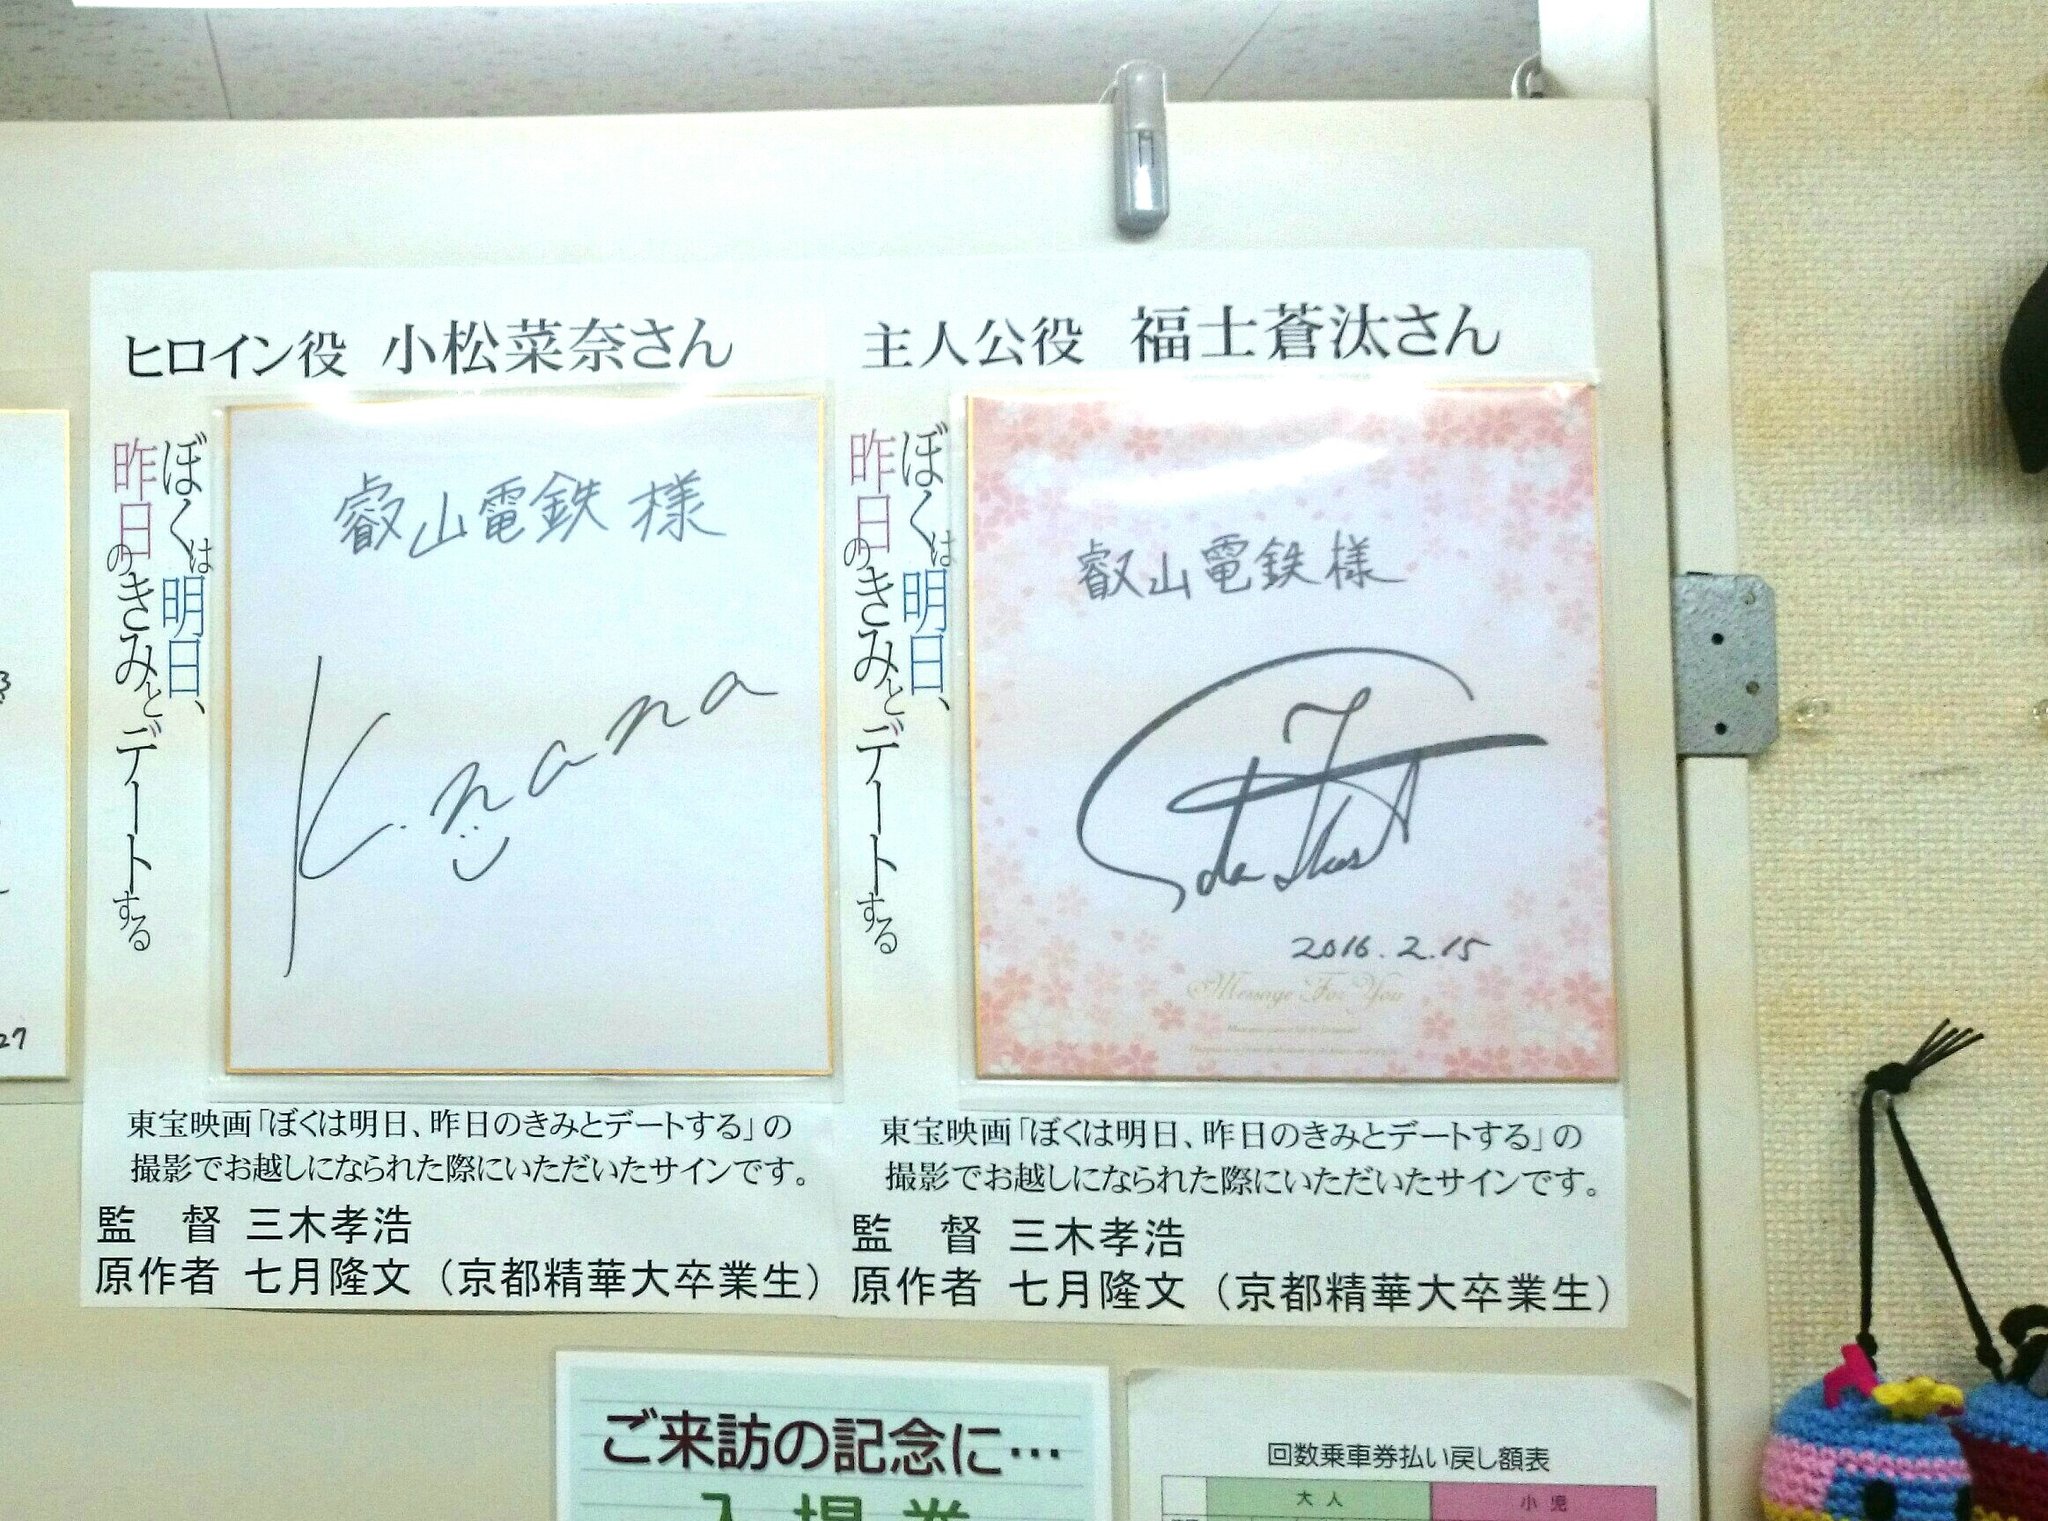 ヒロイン役 小松菜奈さん
ぼくは明日、
昨日のきみとデートする
叡山電鉄 様
K.nana
東宝映画「ぼくは明日、昨日のきみとデートする」の
撮影でお越しになられた際にいただいたサインです。
監 督 三木孝浩
原作者 七月隆文（京都精華大卒業生）
主人公役 福士蒼汰さん
ぼくは明日、
昨日のきみとデートする
叡山電鉄 様
2016.2.15
Message For You
東宝映画「ぼくは明日、昨日のきみとデートする」の
撮影でお越しになられた際にいただいたサインです。
監 督 三木孝浩
原作者 七月隆文（京都精華大卒業生）
27
ご来訪の記念に…
入場券
回数乗車券払い戻し額表
大人 小児